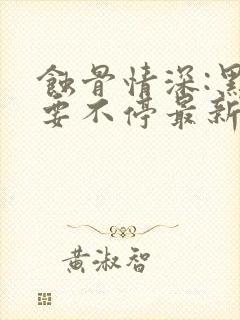 蝕骨情深:黑
要不停最新
黃淑智